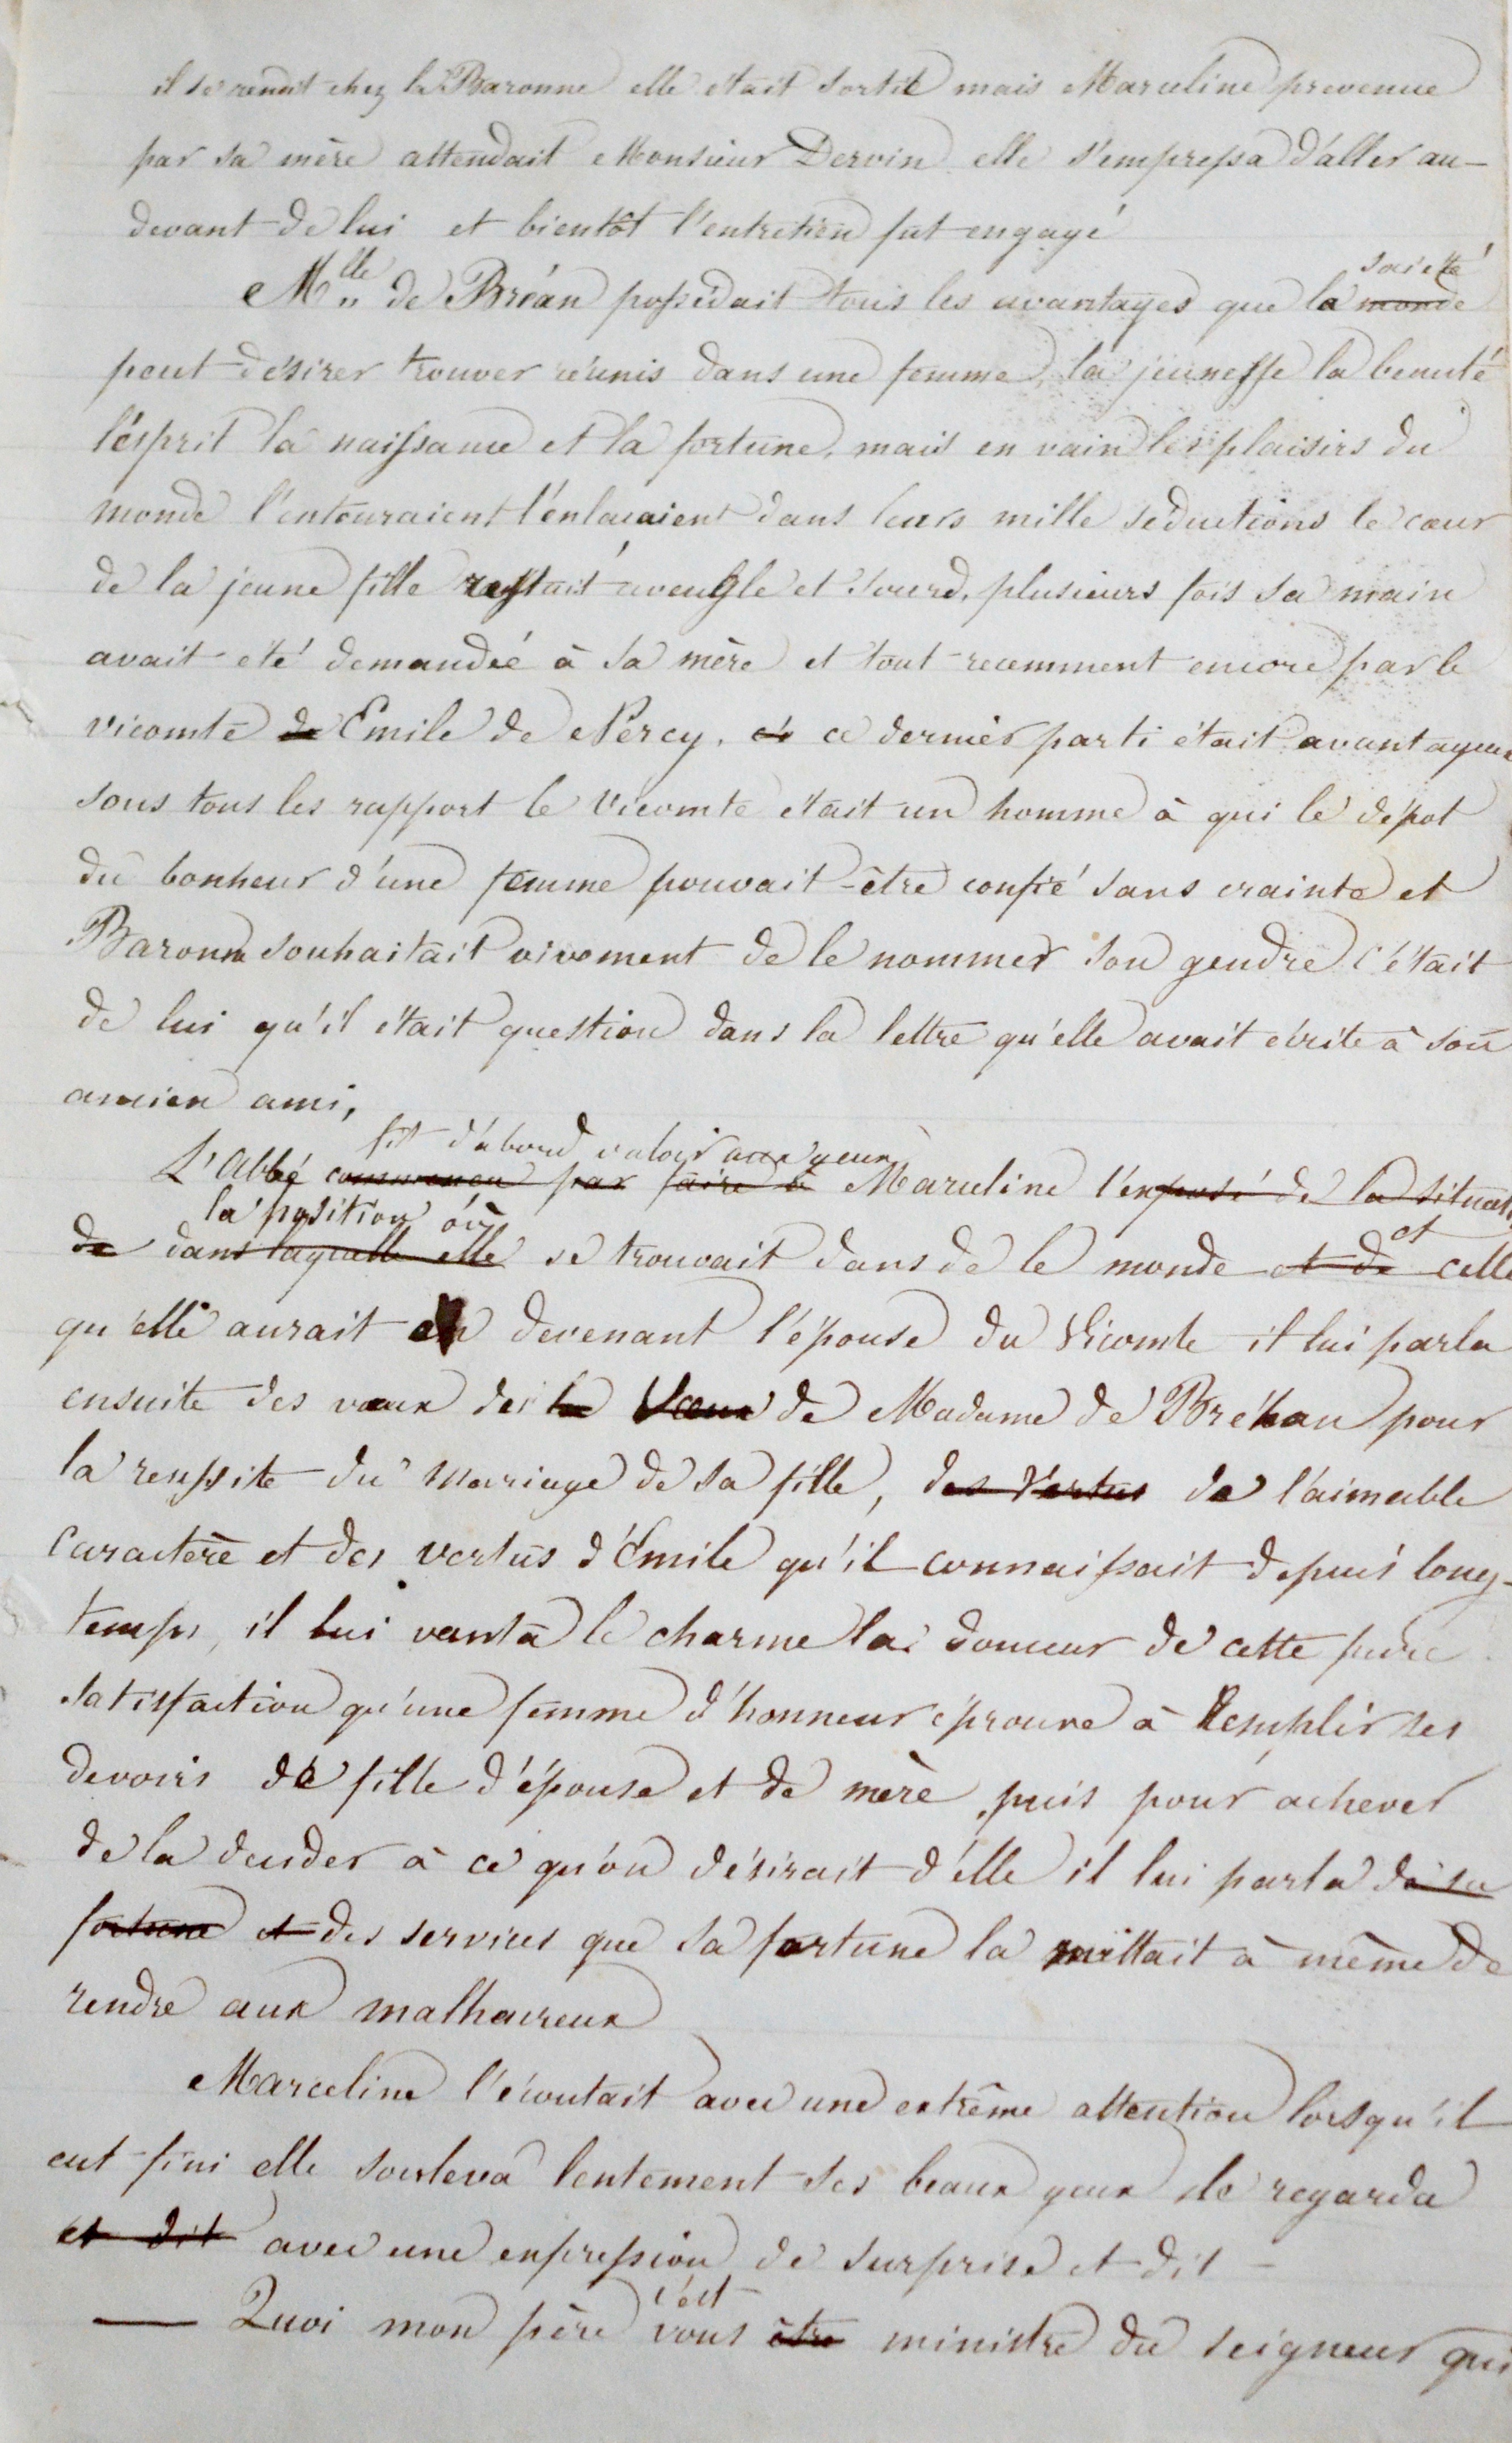 il se rendit chez la Baronne elle était sortie mais Marceline prevenue
par sa mère attendait Monsieur Dervin elle s'empressa d'aller au-
devant de lui et bientôt l'entretien fut engagé
Mlle de Bréan possédait tous les avantages que la ~~monde~~ société
peut désirer trouver réunis dans une femme, la jeunesse la beauté
l'esprit la naissance et la fortune, mais en vain les plaisirs du
monde l'entouraient l'enlaçaient dans leurs mille séductions le cœur
de la jeune fille restait aveugle et sourd, plusieurs fois sa main
avait été demandée à sa mère et tout recemment encore par le
vicomte ~~de~~ Emile de Nercy. ce dernier parti était avantageux
sous tous les rapport le Vicomte était un homme à qui le dépot
du bonheur d'une femme pouvait-être confié sans crainte et
Baronne souhaitait vivement de le nommer son gendre c'était
de lui qu'il était question dans la lettre qu'elle avait écrite à son
ancien ami,
fit d'abord valoir aux yeux
L'Abbé ~~commença par faire à~~ Marceline ~~l'exposé de la situat~~
la position où
~~de dans laquelle elle~~ se trouvait dans de le monde ~~et de~~ et celle
qu'elle aurait en devenant l'épouse du Vicomte il lui parla
ensuite des vœux des ~~la~~ ~~vœux~~ de Madame de Bréhan pour
la reussite du mariage de sa fille, ~~des vertus~~ de l'aimable
caractère et des vertus d'Emile qu'il connaissait depuis long-
temps, il lui vanta le charme la douceur de cette pure
satisfaction qu'une femme d'honneur éprouve à remplir ses
devoirs de fille d'épouse et de mère, puis pour achever
de la decider à ce qu'on désirait d'elle il lui parla ~~de sa~~
~~fortune et~~ des services que sa fortune la mettait à même de
rendre aux malheureux
Marceline l'écoutait avec une extrême attention lorsqu'il
eut fini elle souleva lentement ses beaux yeux le regarda
~~et dit~~ avec une expression de surprise et dit -
— Quoi mon père c'est vous ~~être~~ ministre du seigneur qui